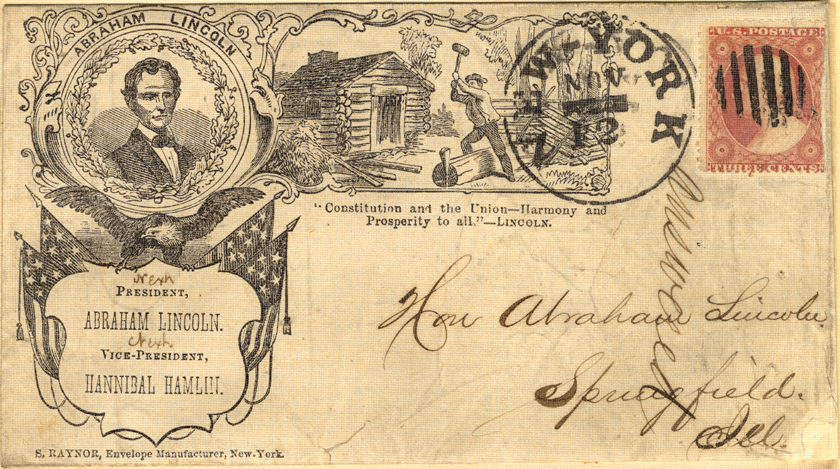 ABRAHAM LINCOLN
Next
PRESIDENT,
ABRAHAM LINCOLN.
Next
VICE-PRESIDENT,
HANNIBAL HAMLIN.
S. RAYNOR, Envelope Manufacturer, New-York.
"Constitution and the Union—Harmony and
Prosperity to all."—LINCOLN.
NEW-YORK
NOV
12
U.S. POSTAGE
THREE CENTS
Hon Abraham Lincoln
Springfield.
Ill.
Answered